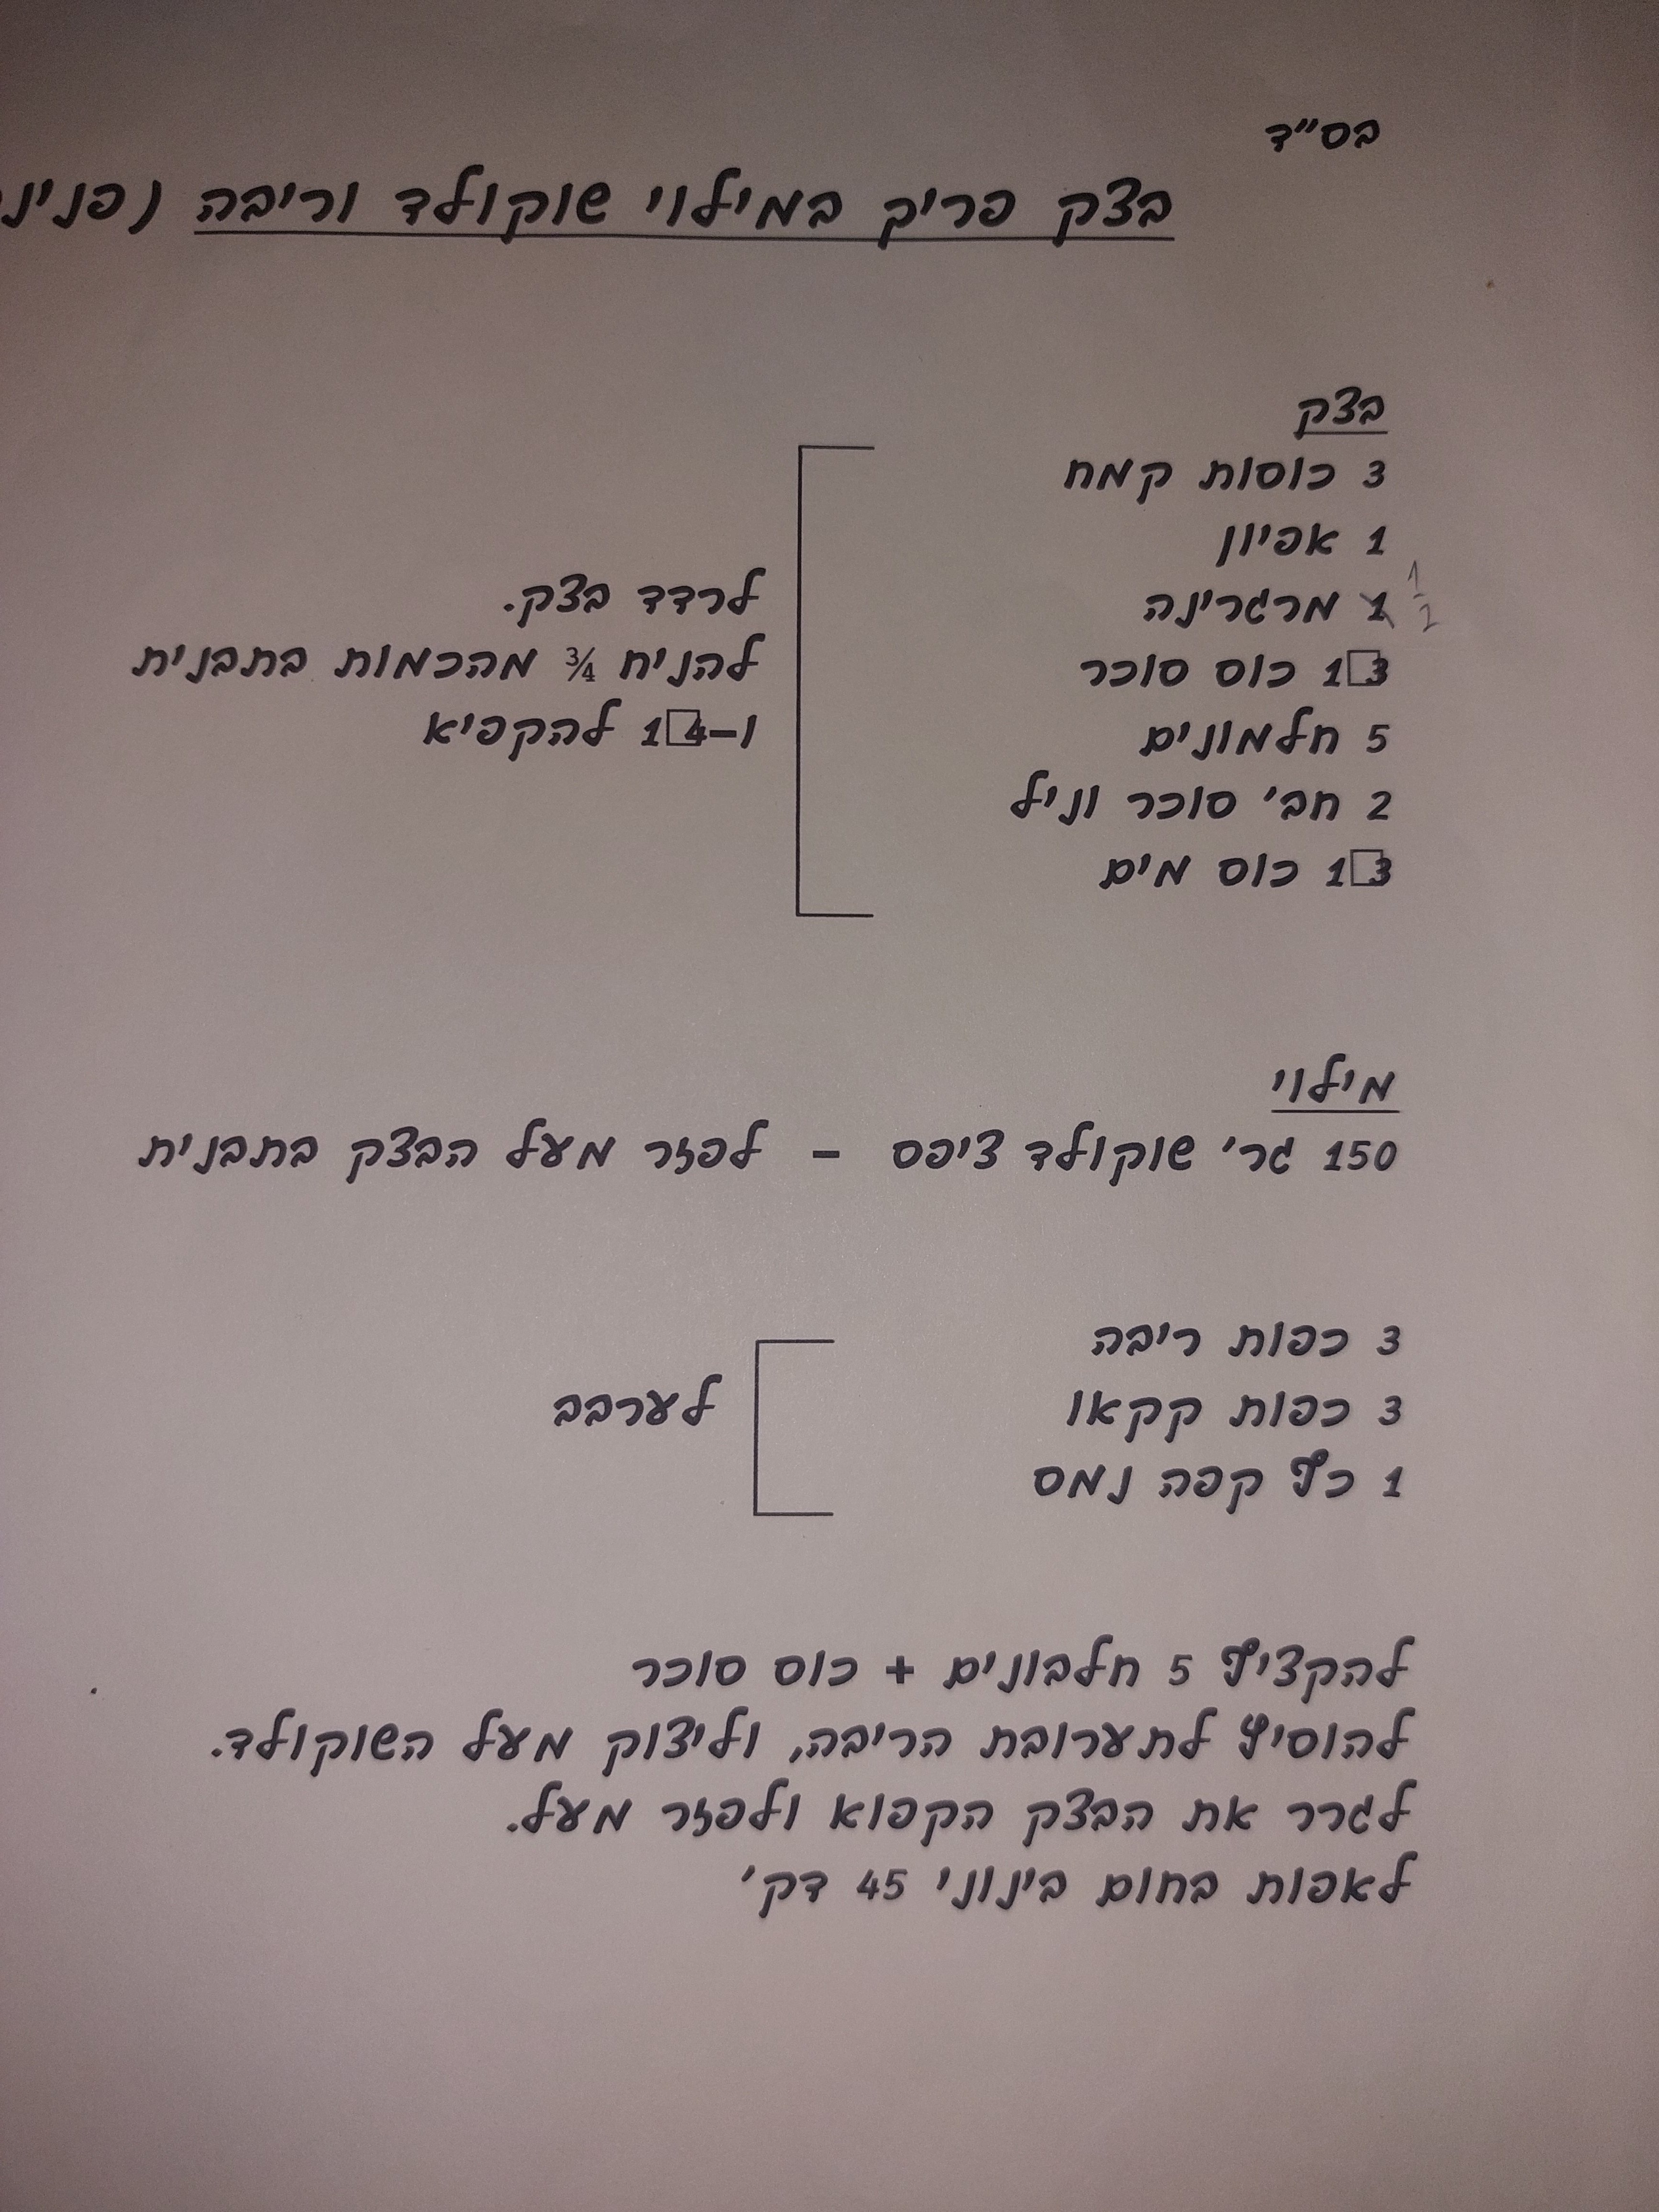 בס"ד
בצק פריך במילוי שוקולד וריבה
בצק
3 כוסות קמח
1 אפיון
1 1/2 מרגרינה
1□3 כוס סוכר
5 חלמונים
2 חב' סוכר וניל
1□3 כוס מים
לרדד בצק.
להניח ¾ מהכמות בתבנית
ו-1□4 להקפיא
מילוי
150 גר' שוקולד ציפס - לפזר מעל הבצק בתבנית
3 כפות ריבה
3 כפות קקאו
1 כף קפה נמס
לערבב
להקציף 5 חלבונים + כוס סוכר
להוסיף לתערובת הריבה, וליצוק מעל השוקולד.
לגרר את הבצק הקפוא ולפזר מעל.
לאפות בחום בינוני 45 דק'